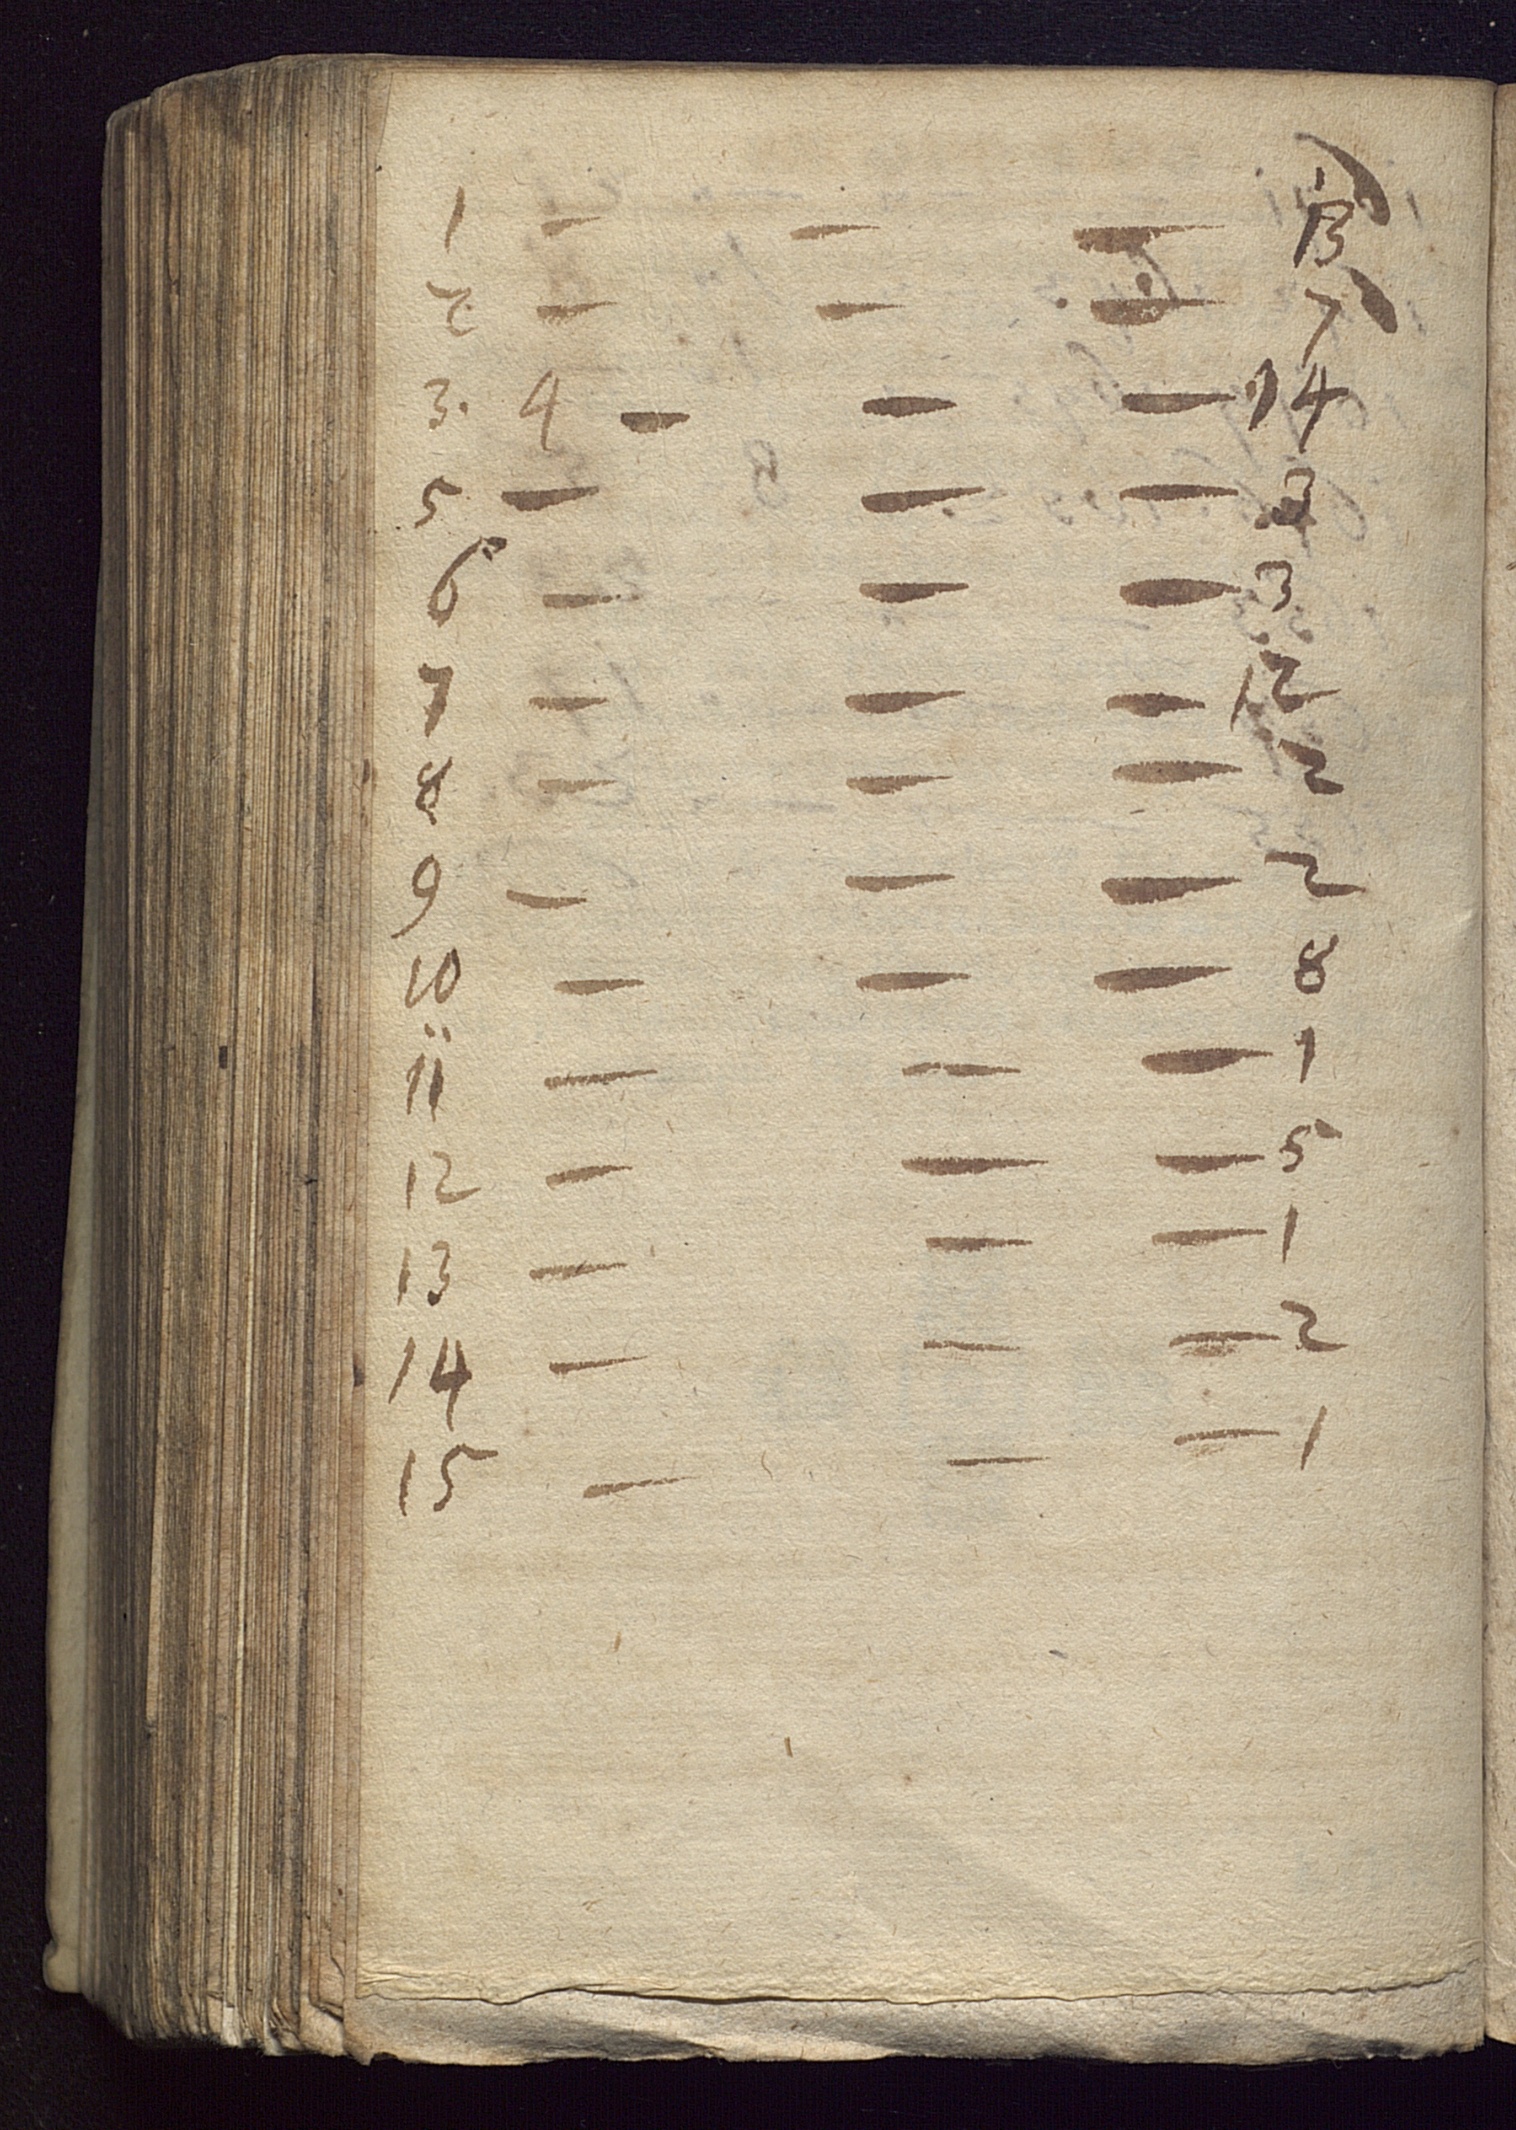 1 - - - 13
2 - - - 7
3. 4 - - - 14
5 - - - 3
6 - - - 3
7 - - - 12
8 - - - 2
9 - - - 2
10 - - - 8
11 - - - 1
12 - - - 5
13 - - - 1
14 - - - 2
15 - - - 1